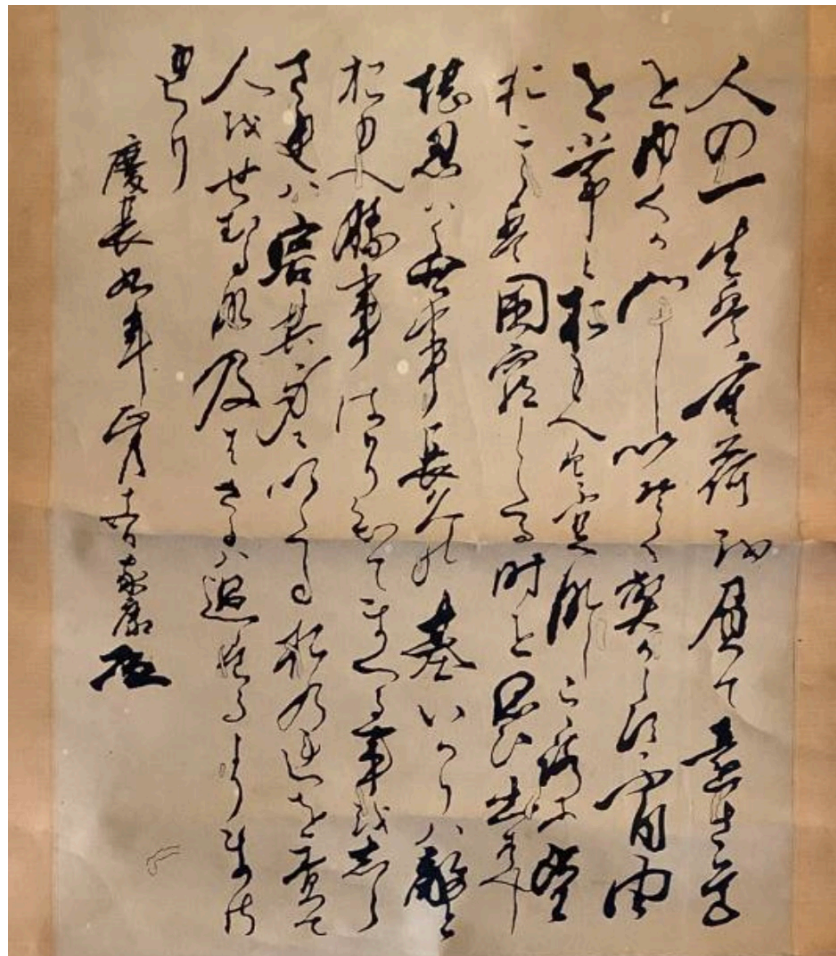 人の一生は重荷を負て遠き道
をゆくか如しいそくへからす不自由
を常とおもへは不足なしこゝろに望
おこらは困窮したる時を思ひ出すへし
堪忍は無事長久の基いかりは敵と
おもへ勝事はかり知てまくる事をしら
されは害其身にいたるおのれを責て
人をせむるな及はさるは過たるよりまさ
れり
慶長九年正月十五日家康